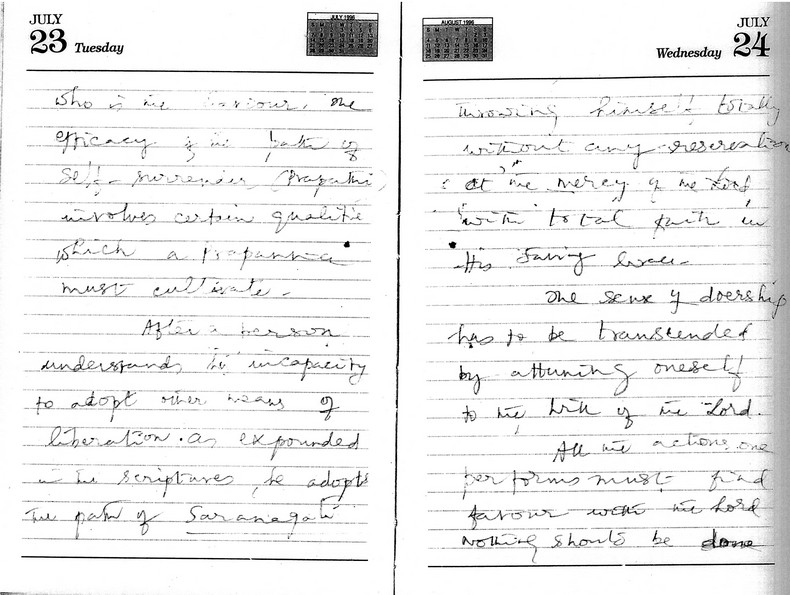 JULY
23 Tuesday
JULY 1996
who is the Saviour. The
efficacy of the path of
Self-surrender (Prapatti)
involves certain qualitie
which a Prapanna
must cultivate.
After a person
understands his incapacity
to adopt other means of
liberation as expounded
in the scriptures, he adopts
the path of Saranagati
AUGUST 1996
JULY
Wednesday 24
Throwing himself totally
without any reservation
at the mercy of the Lord
with total faith in
His saving
The sense of doership
has to be transcended
by attuning oneself
to the of the Lord.
All the actions one
performs must find
favour with the Lord
Nothing should be done